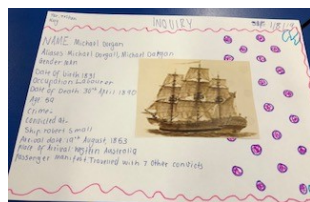 INQUIRY
NAME Michael Dorgan
Aliases Michael Dorgan, Michael
Gender: Man
Date of birth 1831
Occupation Labourer
Date of Death 30th April 1890
Age 59
Crime:
Convicted at-
Ship: robert Small
Arrival date: 19th August, 1853
Place of Arrival: Australia
Passenger manifest Travelled with 7 other convicts